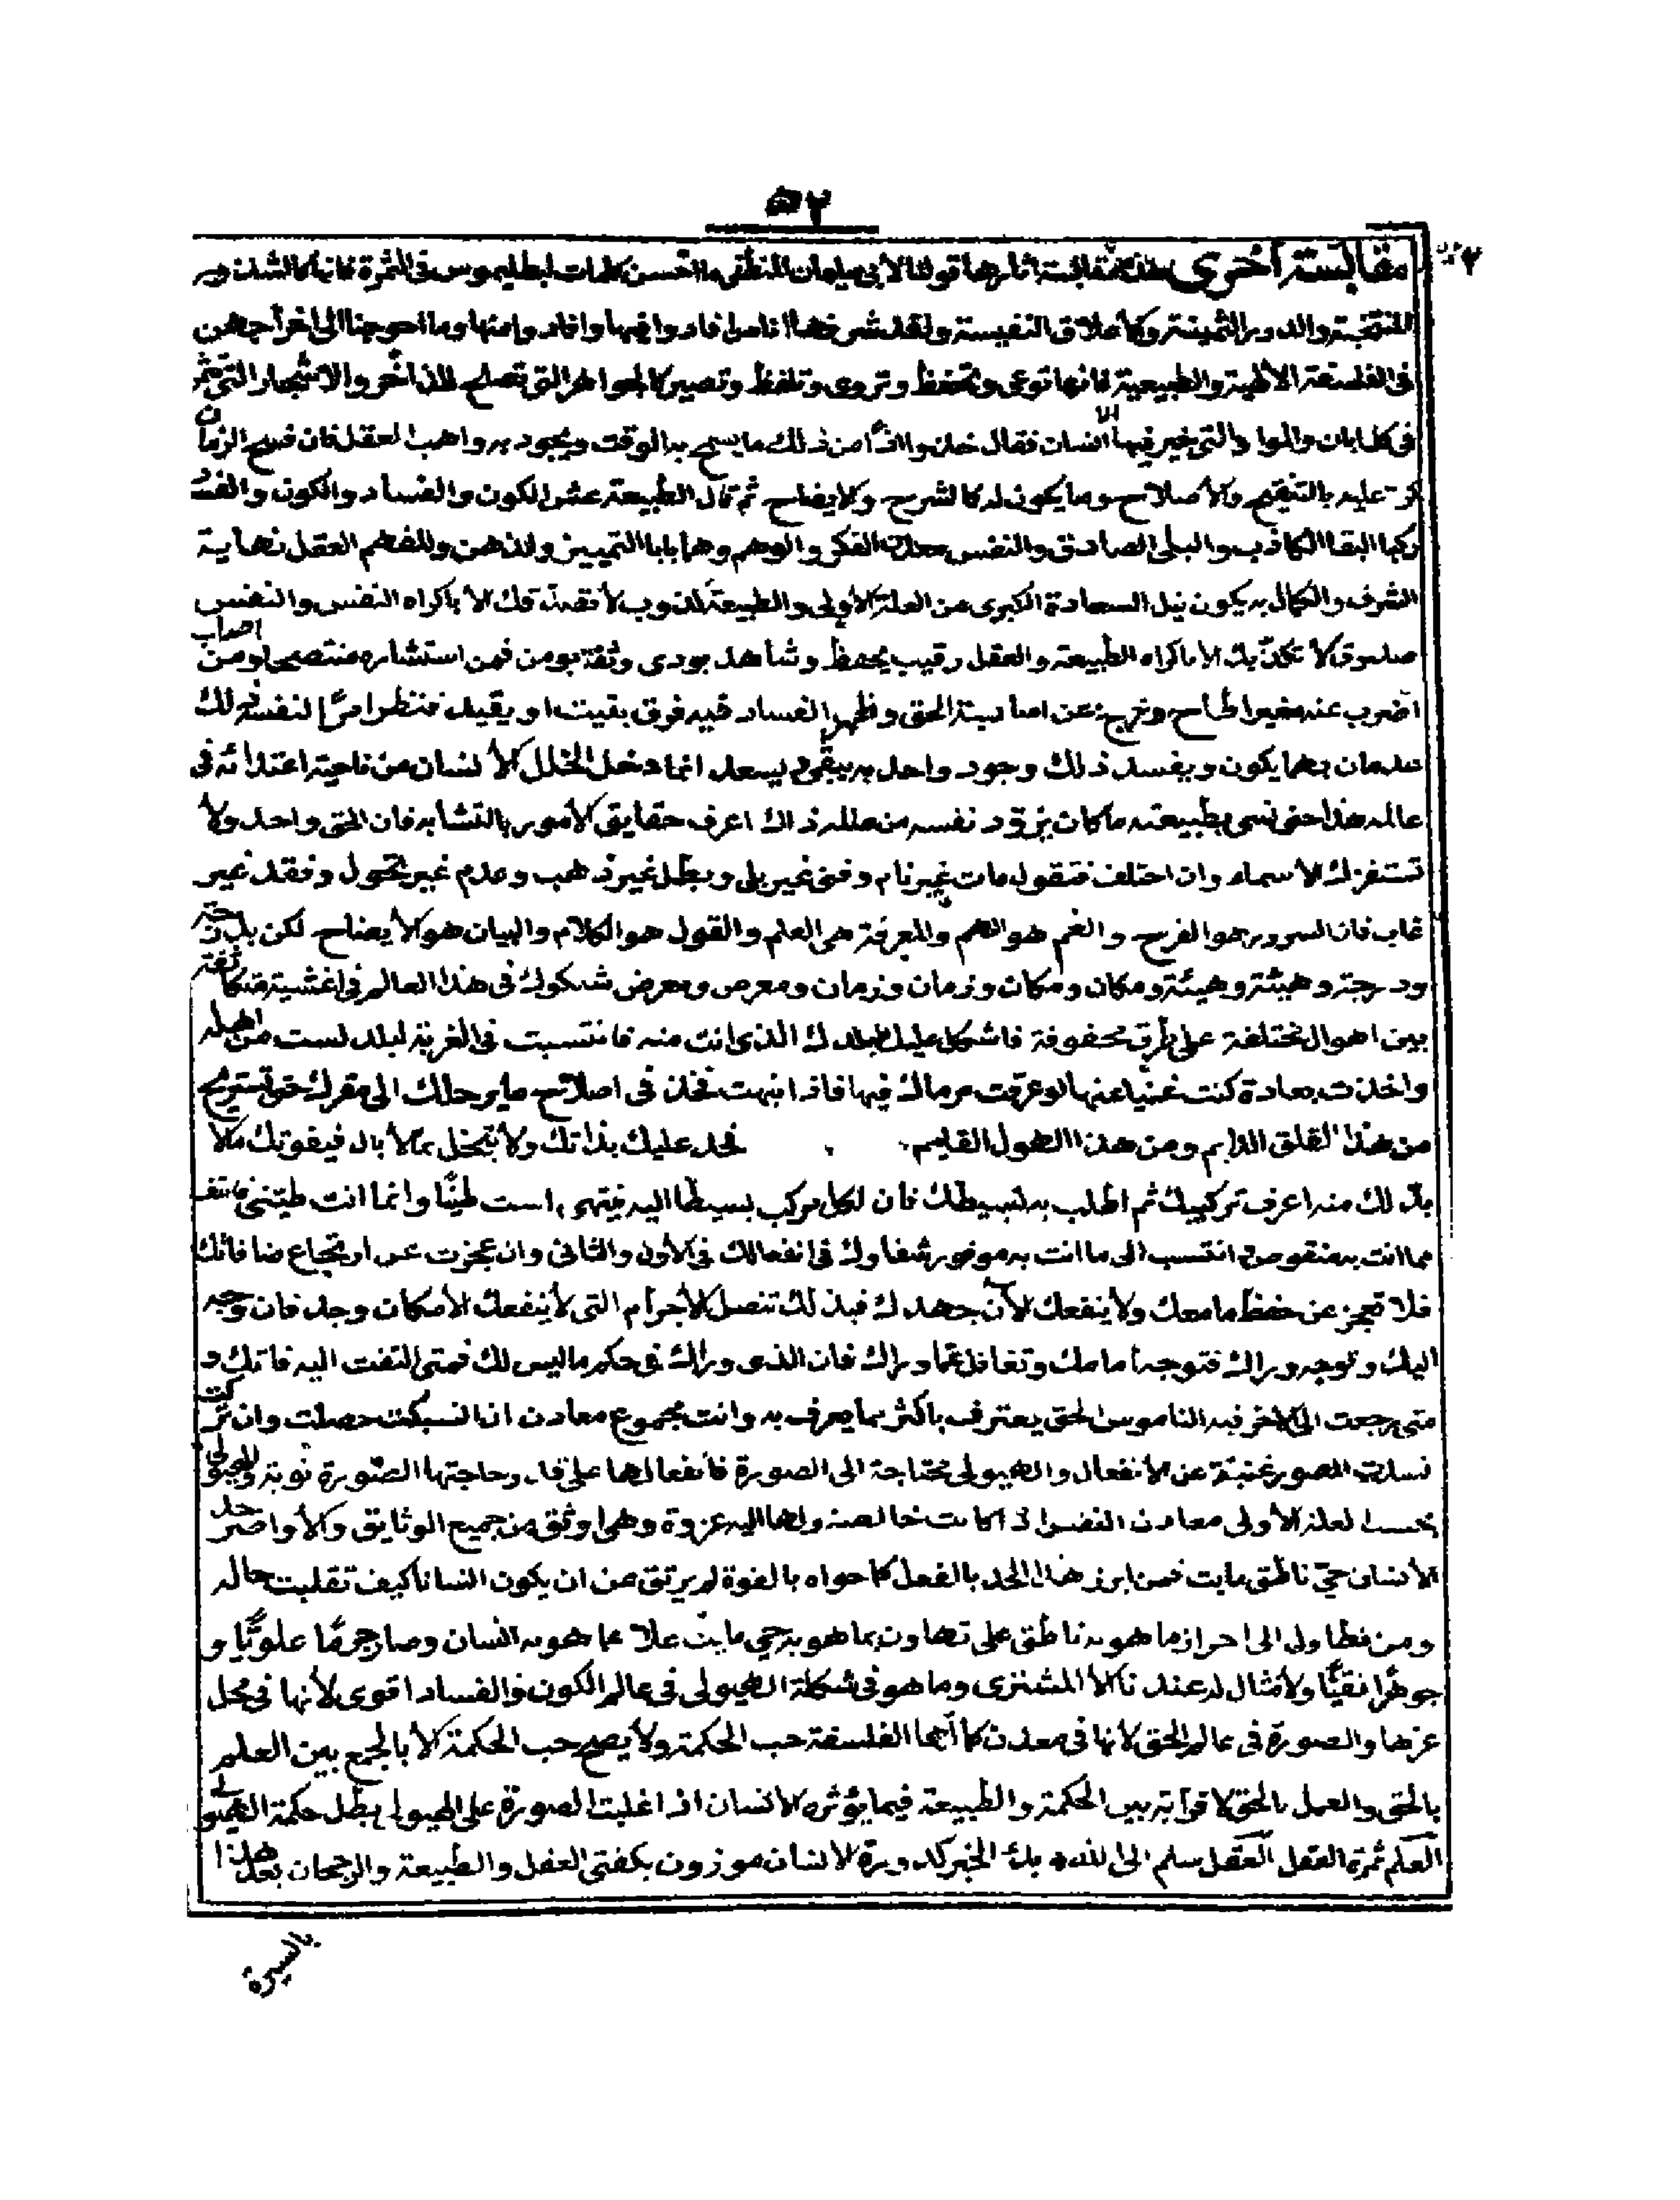 ٥٢
٤٢
مقابسة أخرى هذه مقابسة أثارها قولنا لأبي سليمان المنطقي ما أحسن كلمات لبطليموس في الثمرة فانها كالشذور
المنتخبة والدرر الثمينة والأعلاق النفيسة ولقد شرحها اناس افادوا فيها وافادوا منها وما احوجنا الى اخراجهن
في الفلسفة الالهية والطبيعية فانها توعى وتحفظ وتروى وتلفظ وتصير كالجواهر التي تصلح للذخائر والاشجار التي تثمر
في كل ابان والتي فيها الانسان فقال خذوا اذاً من ذلك ما يسمح به الوقت ويجود به واهب العقل فان فسح الزمان
كر عليه بالتنقيح والاصلاح وما يكون له كالشرح والايضاح ثم قال الطبيعة عش الكون والفساد والكون والفسا
ركبا البقاء الكاذب والبلى الصادق والنفس معدن الفكر والوهم وهما بابا التمييز والذهن والفهم العقل نهاية
الشرف والكمال به يكون نيل السعادة الكبرى من العلة الاولى والطبيعة كذوب لا تصدقك الا باكراه النفس والنفس
صدوق لا تكذبك الا باكراه الطبيعة والعقل رقيب يحفظ وشاهد يودي وثقة يومن فمن استشاره منتصحا اصاب ومن
اضرب عنه مغيرا طاح وخرج عن اسا سية الحق وظهر الفساد فيه فرق بقيت او يقيك فتنظر امراً لنفسه ذلك
عدمان بهما يكون ويفسد ذلك وجود واحد به يبقى ويسعد انما دخل الخلل الانسان من ناحية اعتدائه في
عالمه هذا حتى نسي بطبيعته ما كان يزود نفسه من عالمه ذاك اعرف حقايق الامور بالتشابه فان الحق واحد ولا
تستفزك الاسماء وان اختلف فتقول مات غير نام وفنى غير بلى وبطل غير ذهب وعدم غير تحول وفقد غير
غاب فان السرور هو الفرح والغم هو الهم والمعرفة هي العلم والقول هو الكلام والبيان هو الايضاح لكن بدرجة
ودرجة وهيئة وهيئة ومكان ومكان وزمان وزمان ومعرض ومعرض شكوك في هذا العالم في اغشية متكاثفة
بين اهوال مختلفة على طرق محفوفة فاشكل عليك بلدك الذي انت منه فانتسبت في الغربة لبلد لست من اهله
واخذت بعادة كنت غنيا عنها لو عرفت مرماك فيها فاذا انبهت فخذ في اصلاح ما يرحلك الى مقرك حتى تستريح
من هذا القلق الدايم ومن هذا الهول القايم فجد عليك بذاتك ولا تبخل بما لا بال فيفوتك ما لا
بد لك منه اعرف تركيبك ثم اطلب به تبسيطك فان لكل مركب بسيطا اليه ينتهي لست طينا وانما انت طيني فانتف
مما انت به منقوص انتسب الى ما انت به موفور شفاوك في انفعالك في الاول والثاني وان عجزت عن ارتجاع ما فاتك
فلا تعجز عن حفظ ما معك ولا ينفعك الآن جهدك فبذلك تنصل الاجرام التي لا ينفعك الامكان وجد فان توجه
اليك وتوجه وراك فتوجه امامك وتغافل عما وراك فان الذي وراك في حكم ما ليس لك فمتى التفت اليه فاتك و
متى رجعت الى الاخر فيه الناموس الحق يعترف باكثر مما يعرف به وانت مجموع معادن اذا انسبكت حصلت وان تركت
فسدت الصور غنية عن الانفعال والهيولى محتاجة الى الصورة فانفعالها على قدر حاجتها الصورة نوبة والهيولى
بحسب العلة الاولى معادن النفس اذا كانت خالصة ولها اليه عزوة وهي اوثق من جميع الوثايق والاواصر حد
الانسان حي ناطق مايت فمن ابرز هذا الحد بالفعل كما حواه بالقوة لم يرتق من ان يكون انسانا كيف تقلبت حاله
ومن تطاول الى احراز ما هو به ناطق على تهاون بما هو به حي مايت علا عما هو به انسان وصار جرما علويا و
جوهرا نقيا ولا مثال له عندنا كالا المشتري وما هو في شكله الهيولى في عالم الكون والفساد اقوى لانها في محل
عزها والصورة في عالم الحق لانها في معدن كمالها الفلسفة حب الحكمة ولا يصح حب الحكمة الا بالجمع بين العلم
بالحق والعمل بالحق لا قرابة بين الحكمة والطبيعة فيما يؤثره الانسان اذا غلبت الصورة على الهيولى بطل حكمة الهيولى
العلم ثمرة العقل العقل سلم الى الله بك الخبر كدورة الانسان موزون بكفتي العقل والطبيعة والرجحان بعد هذا
بالسيرة